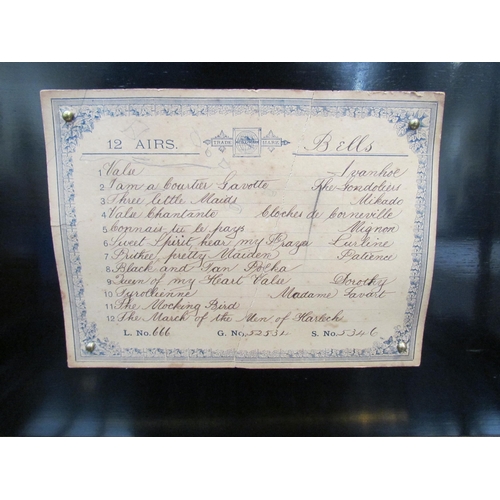 12 AIRS. TRADE MARK Bells
1 Vals Ivanhoe
2 I am a Courtier Gavotte The Gondoliers
3 Three little Maids Mikado
4 Vals Chantante Cloches de Corneville
5 Connais tu le pays Mignon
6 Sweet Spirit hear my Praza Lurline
7 Prithee pretty Maiden Patience
8 Black and Tan Polka
9 Queen of my Heart Vals Dorothy
10 Tyrolienne Madame Favart
11 The Mocking Bird
12 The March of the Men of Harleche
L. No. 666 G. No. 52531 S. No. 5346